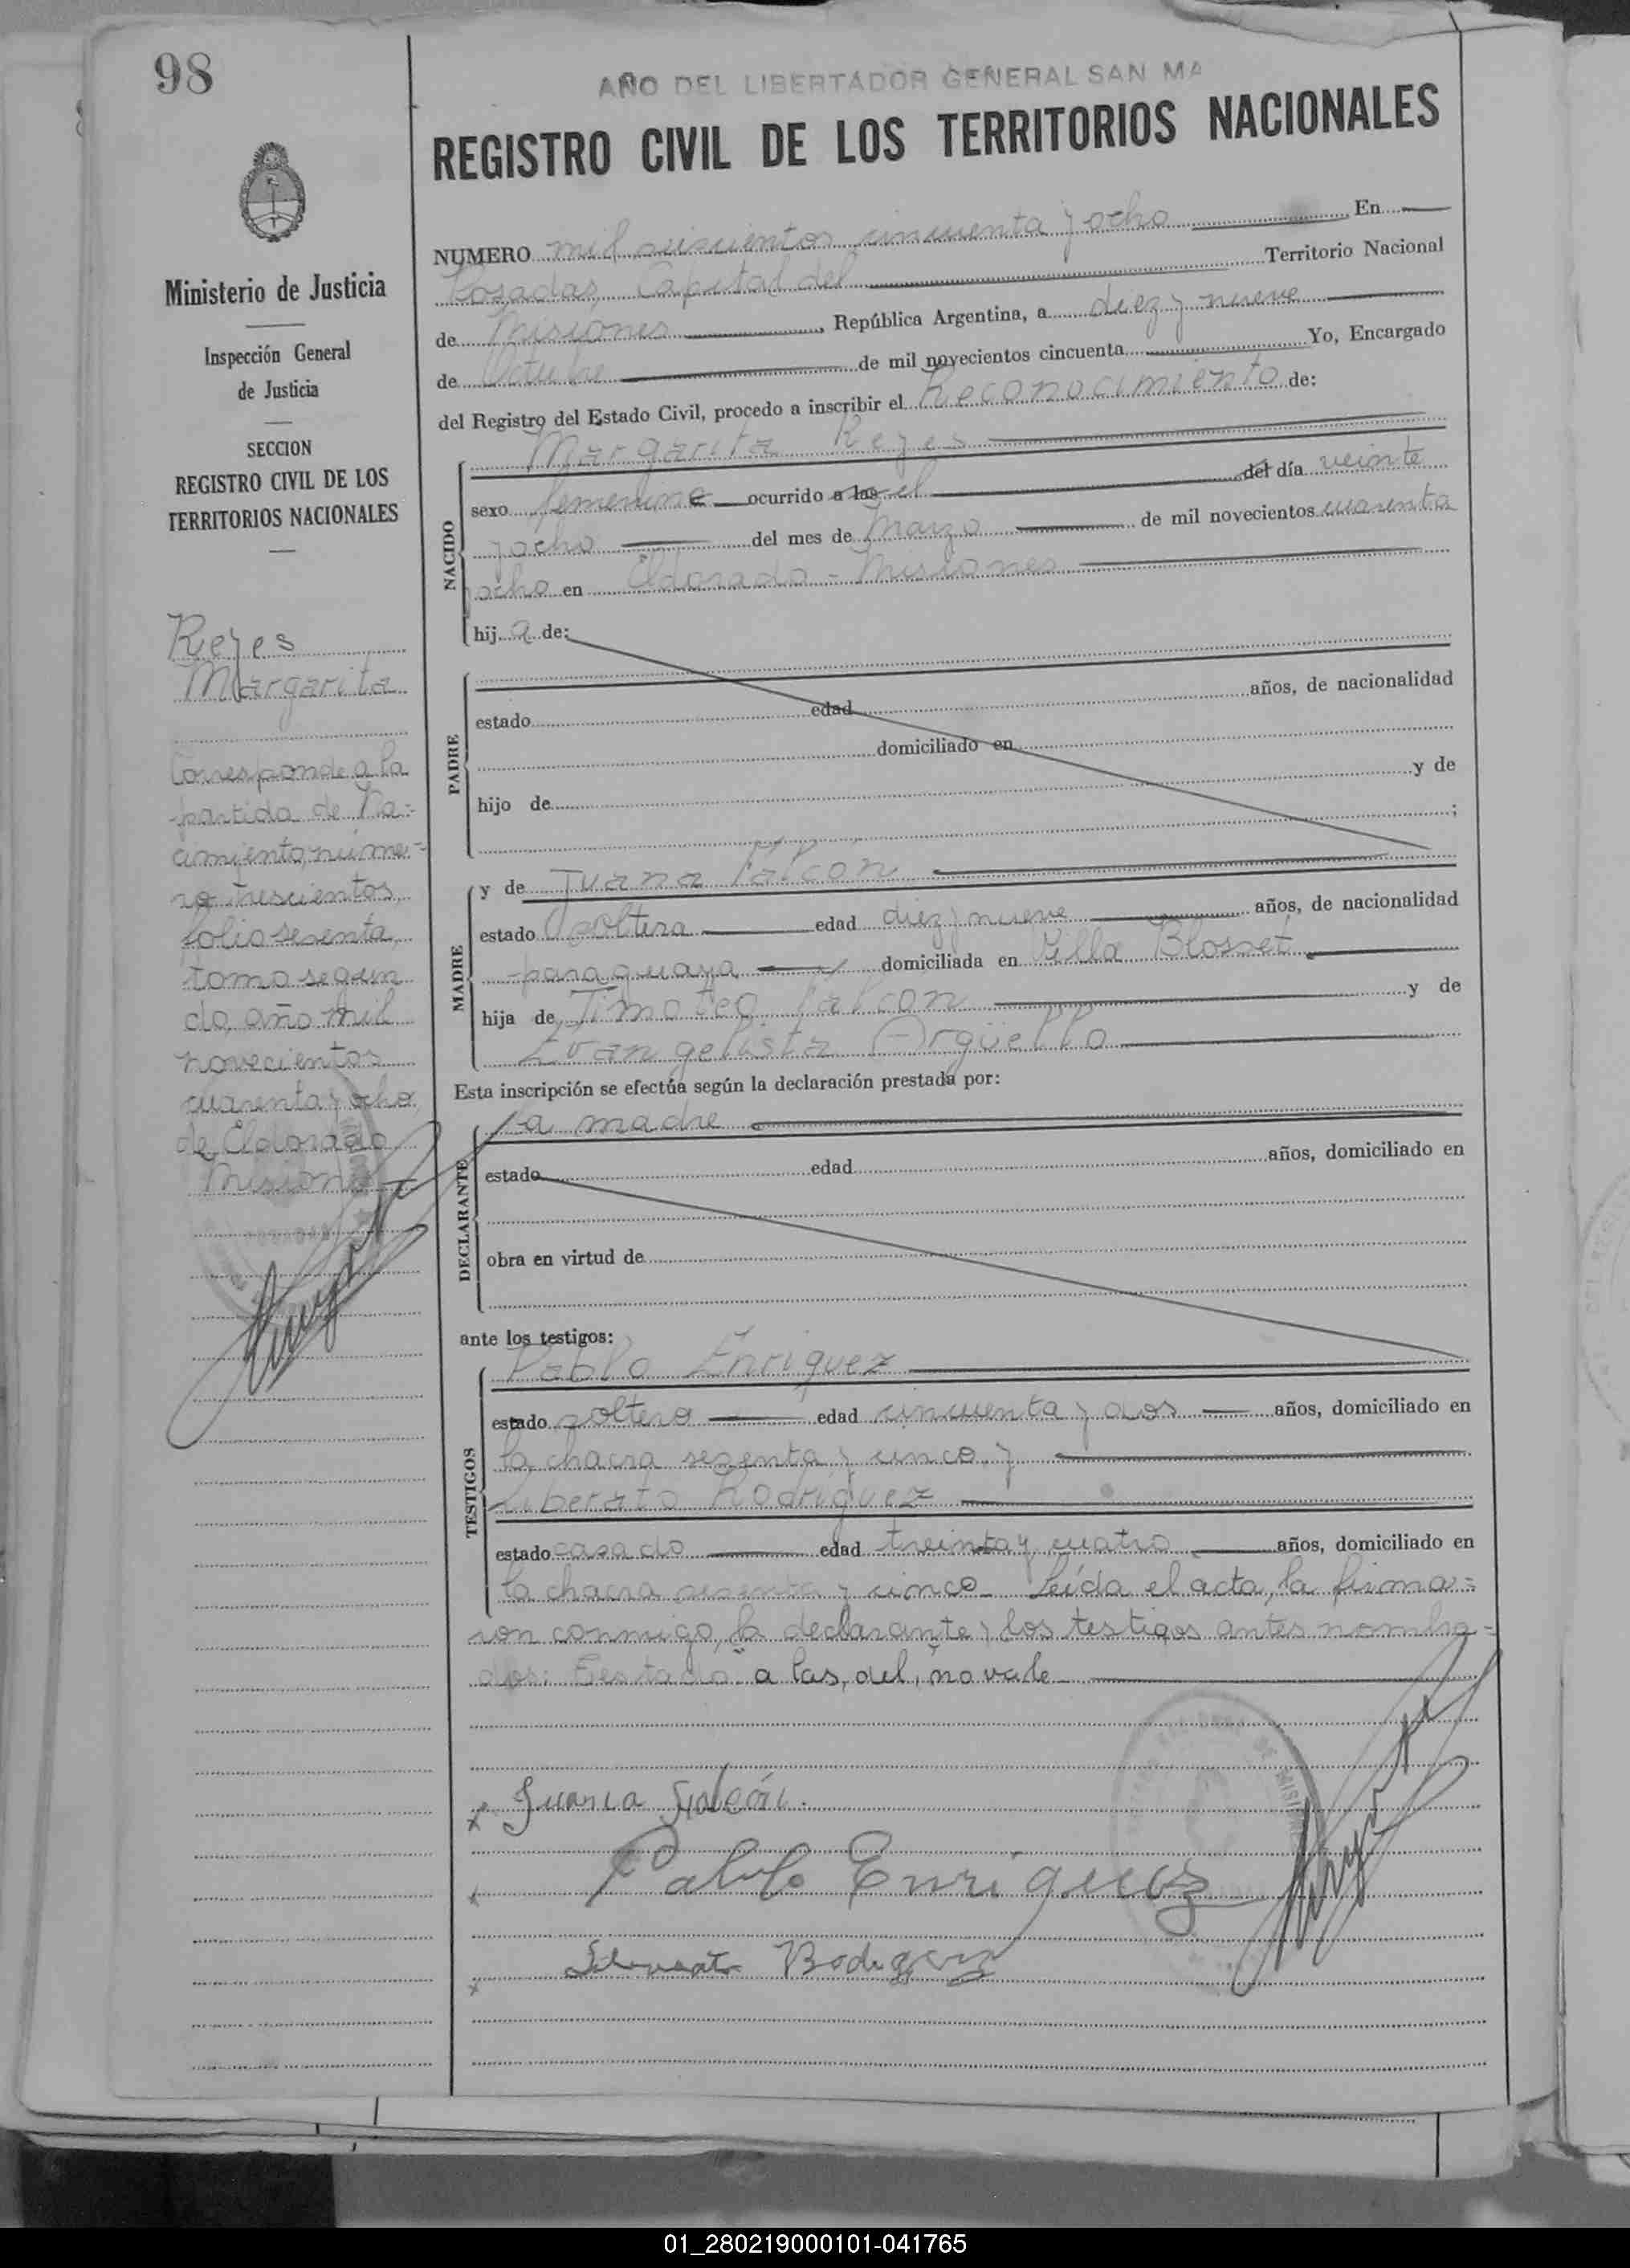 98
AÑO DEL LIBERTADOR GENERAL SAN MA
REGISTRO CIVIL DE LOS TERRITORIOS NACIONALES
Ministerio de Justicia
Inspección General
de Justicia
SECCION
REGISTRO CIVIL DE LOS
TERRITORIOS NACIONALES
Reyes
Margarita
Corresponde a la
partida de Na-
cimiento, núme-
ro trescientos,
folio sesenta,
tomo segun
do, año mil
novecientos
cuarenta y ocho
de Eldorado
Misiones
NUMERO mil seiscientos cincuenta y ocho En
Posadas, Capital del Territorio Nacional
de Misiones, República Argentina, a diez y nueve
de Octubre de mil novecientos cincuenta Yo, Encargado
del Registro del Estado Civil, procedo a inscribir el Reconocimiento de:
NACIDO
Margarita Reyes
sexo femenino ocurrido a las el del día veinte
y ocho del mes de Marzo de mil novecientos cuarenta
y ocho en Eldorado - Misiones
hij a de:
PADRE
estado edad años, de nacionalidad
domiciliado en
hijo de y de
;
MADRE
y de Juana Falcón
estado soltera edad diez y nueve años, de nacionalidad
paraguaya domiciliada en Villa Blosset
hija de Timoteo Falcón y de
Evangelista Argüello
Esta inscripción se efectúa según la declaración prestada por:
DECLARANTE
la madre
estado edad años, domiciliado en
obra en virtud de
ante los testigos:
TESTIGOS
Pablo Enriquez
estado soltero edad cincuenta y dos años, domiciliado en
la chacra sesenta y cinco, y
Liberato Rodriguez
estado casado edad treinta y cuatro años, domiciliado en
la chacra sesenta y cinco - Leída el acta, la firma=
ron conmigo, la declarante y los testigos antes nombra=
dos: Testado "a las, del, no vale
x Juana Falcón.
x Pablo Enriquez
x Rodriguez
01_280219000101-041765